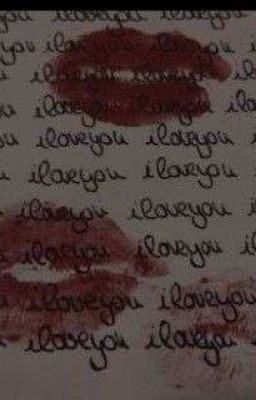 iloveyou iloveyou
you iloveyou iloveyou
iloveyou iloveyou ilo
ou iloveyou iloveyou ilo
ou iloveyou iloveyou
iloveyou iloveyou
iloveyou iloveyou
iloveyou iloveyou
iloveyou iloveyou
iloveyou iloveyou